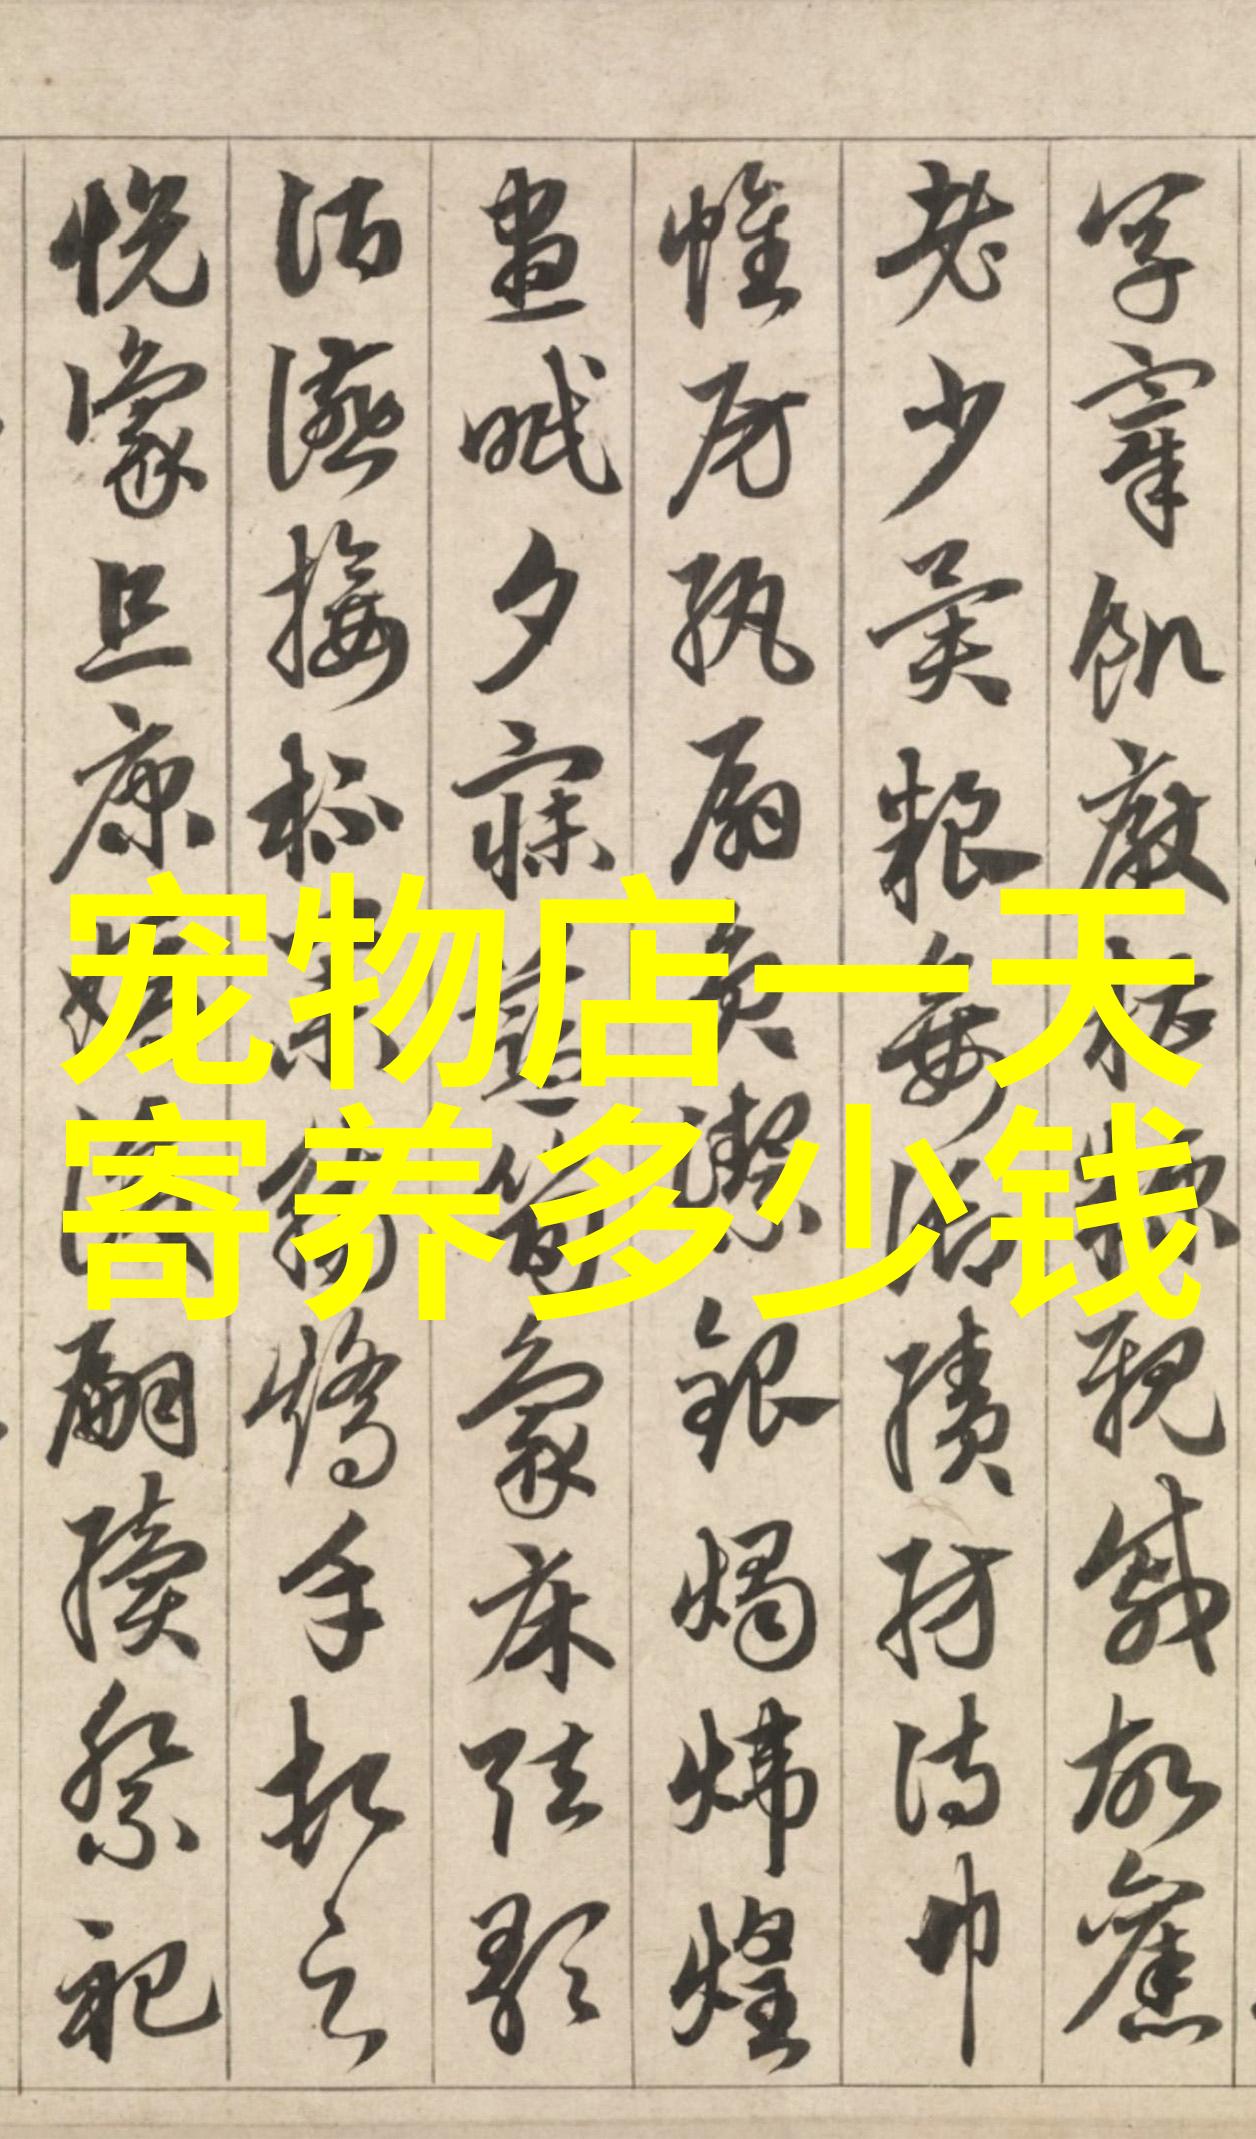 宰飢厭糟糠親戚故舊
老少異粮妾御績紡侍巾
帷房紈扇員潔銀燭煒煌
晝眠夕寐藍筍象床弦歌
酒讌接杯舉觴矯手頓足
悅豫且康嫡後嗣續祭祀
宠物店一天
寄养多少钱